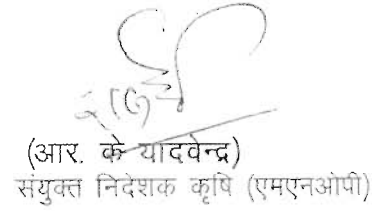 (आर. के यादवेन्द्र)
संयुक्त निदेशक कृषि (एमएनओपी)